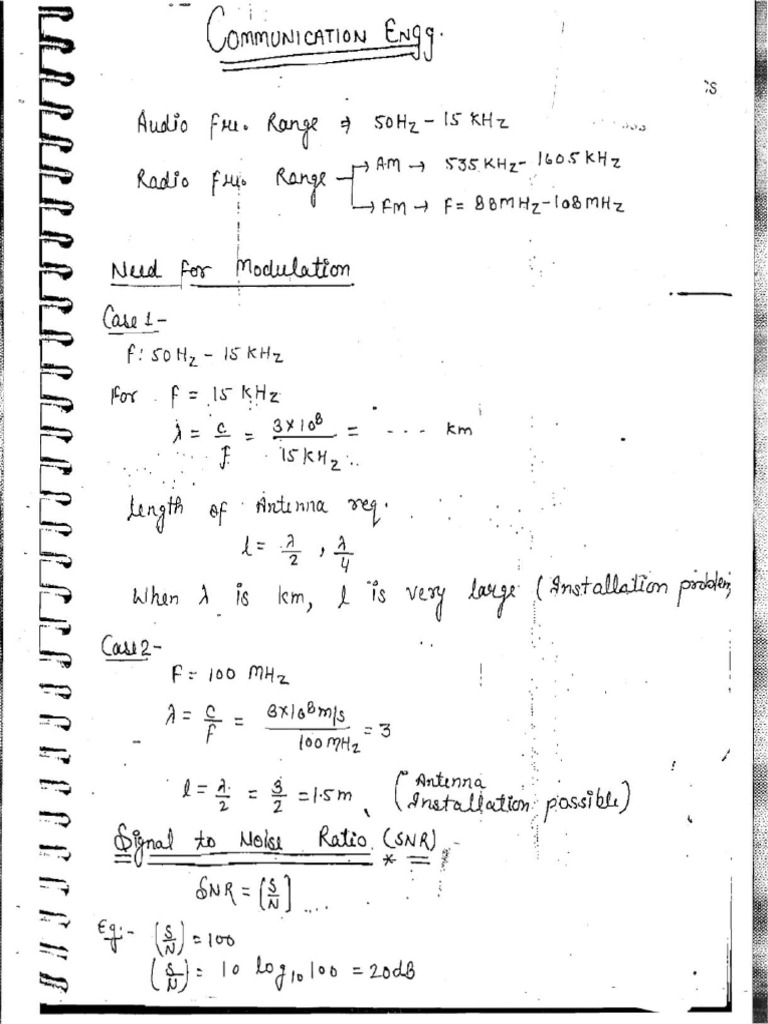 COMMUNICATION ENgg.
Audio fre. Range ⇒ 50Hz - 15 KHz
Radio fre. Range → AM → 535 KHz - 1605 KHz
→ FM → f = 88MHz - 108MHz
Need For Modulation
Case 1 -
f: 50 Hz - 15 KHz
For f = 15 KHz
λ = c/f = 3×10⁸/15 KHz = --- km
length of Antenna req.
l = λ/2 , λ/4
When λ is km, l is very large (Installation problem)
Case 2 -
F = 100 MHz
λ = c/f = 3×10⁸ m/s/100 MHz = 3
l = λ/2 = 3/2 = 1.5 m, (Antenna Installation possible)
Signal to Noise Ratio (SNR)
* =
SNR = (S/N]
Eg:- (S/N) = 100
(S/N) = 10 log₁₀ 100 = 20dB